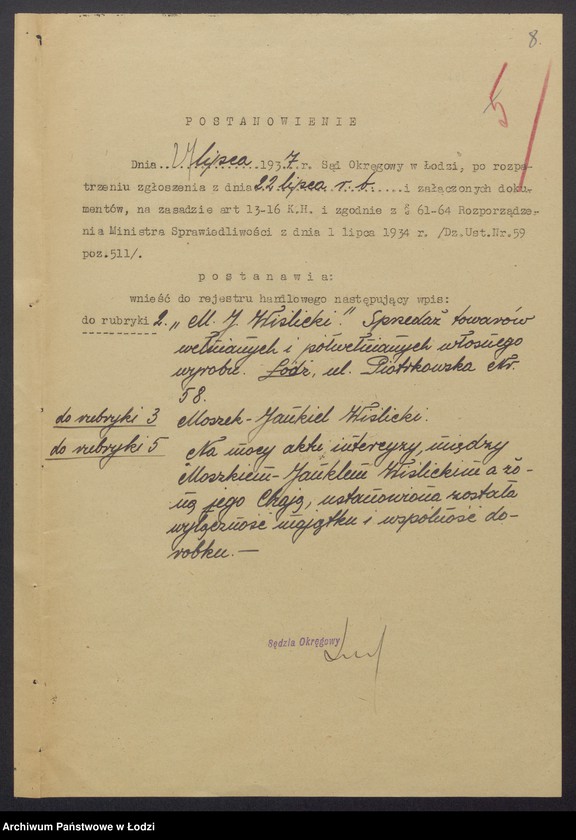 8.
5
POSTANOWIENIE
Dnia lipca 1937.r. Sąd Okręgowy w Łodzi, po rozpa-
trzeniu zgłoszenia z dnia 22 lipca r. b. i załączonych doku-
mentów, na zasadzie art 13-16 K.H. i zgodnie z § 61-64 Rozporządze-
nia Ministra Sprawiedliwości z dnia 1 lipca 1934 r. /Dz.Ust.Nr.59
poz.511/.
postanawia:
wnieść do rejestru handlowego następujący wpis:
do rubryki 2. „M. J. Wiślicki." Sprzedaż towarów
wełnianych i półwełnianych własnego
wyrobu. Łódź, ul. Piotrkowska Nr.
58.
do rubryki 3 Moszek-Jankiel Wiślicki.
do rubryki 5 Na mocy aktu intercyzy, między
Moszkiem-Janklem Wiślickim a żo-
ną jego Chają, ustanowiona została
wyłączność majątku i wspólność do-
robku.—
Sędzia Okręgowy
Archiwum Państwowe w Łodzi